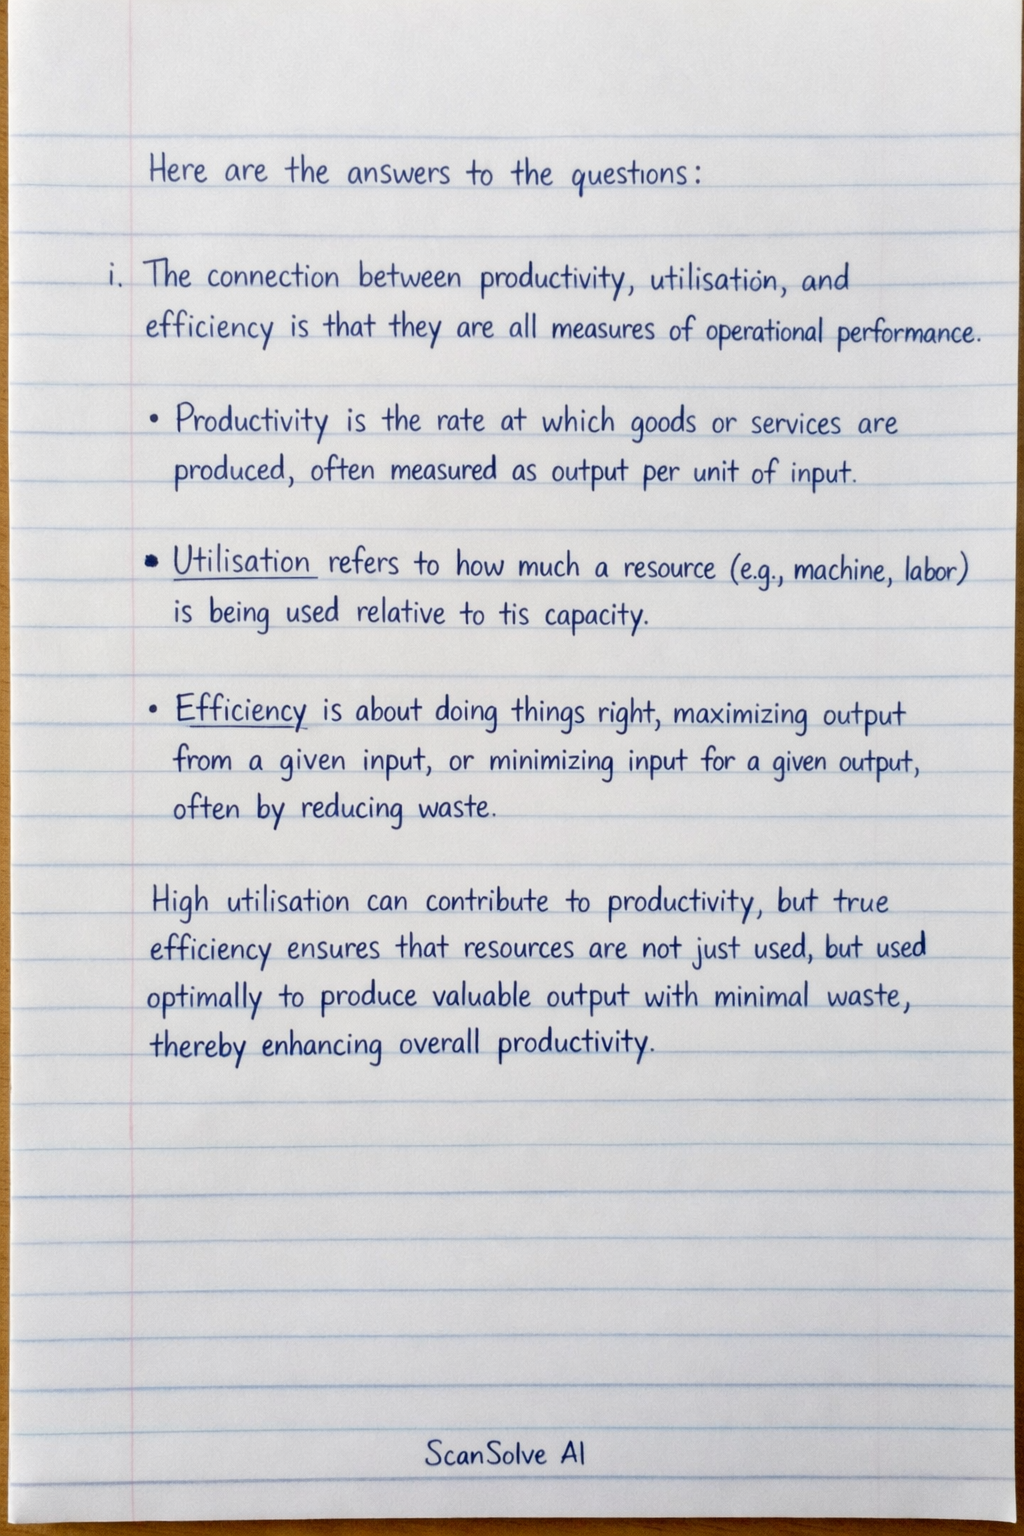 Here are the answers to the questions:
i. The connection between productivity, utilisation, and
efficiency is that they are all measures of operational performance.
• Productivity is the rate at which goods or services are
produced, often measured as output per unit of input.
• Utilisation refers to how much a resource (e.g., machine, labor)
is being used relative to tis capacity.
• Efficiency is about doing things right, maximizing output
from a given input, or minimizing input for a given output,
often by reducing waste.
High utilisation can contribute to productivity, but true
efficiency ensures that resources are not just used, but used
optimally to produce valuable output with minimal waste,
thereby enhancing overall productivity.
ScanSolve AI